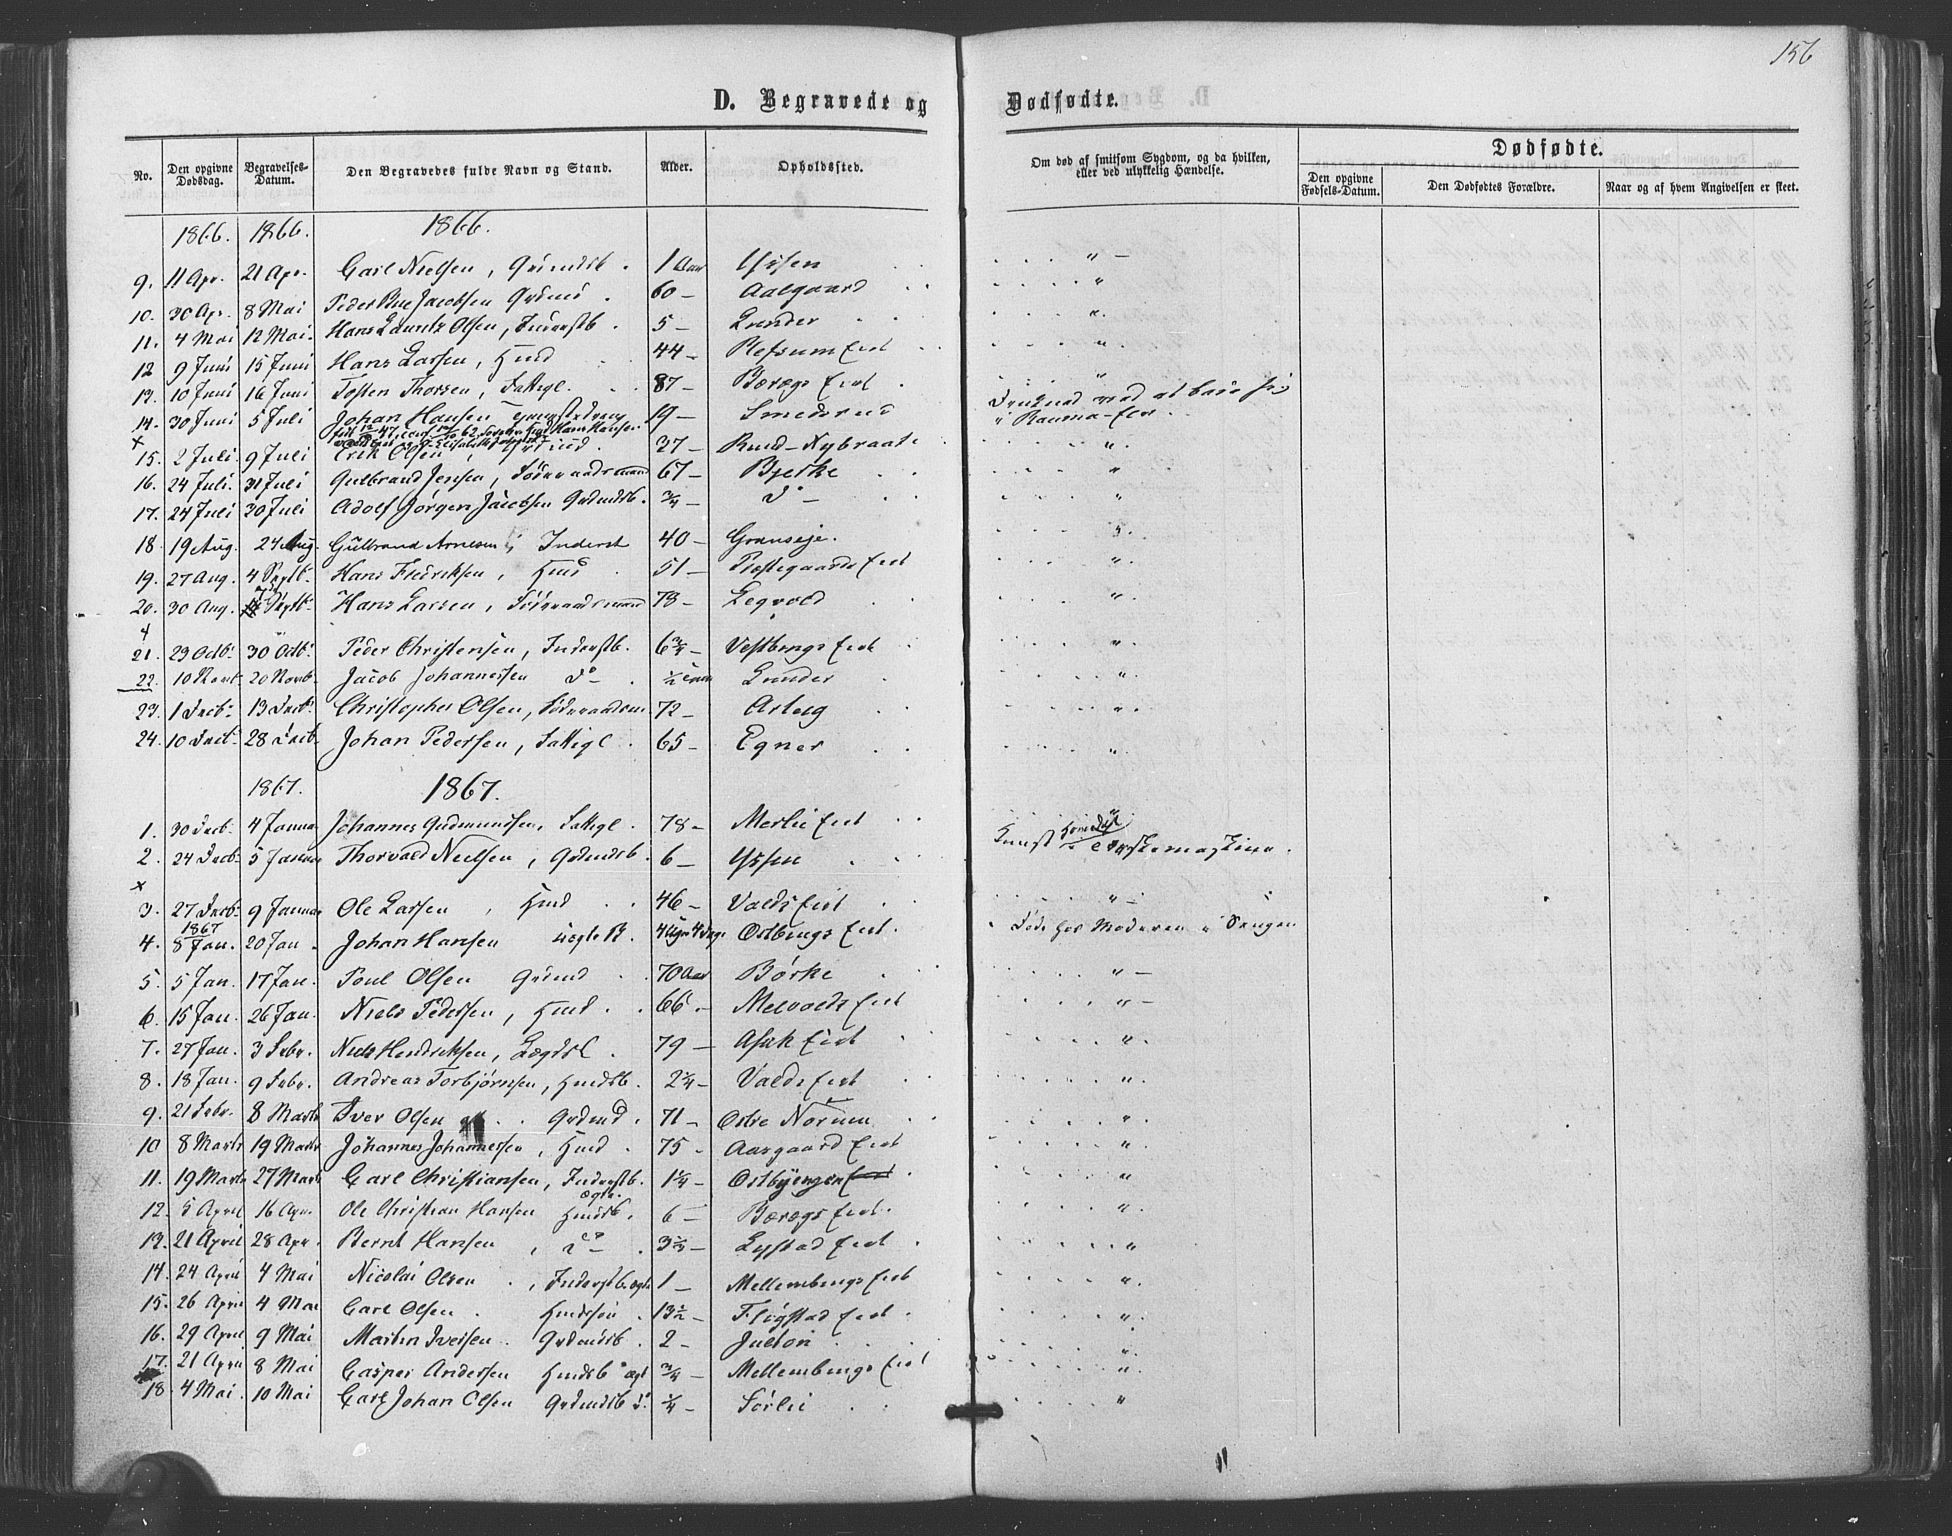 156
D. Begravede og Dødfødte.
No. Den opgivne Dødsdag. Begravelses-Datum. Den Begravedes fulde Navn og Stand. Alder. Opholdssted. Om død af smitsom Sygdom, og da hvilken, eller ved ulykkelig Hændelse. Dødfødte.
Den opgivne Fødsels-Datum. Den Dødfødtes Forældre. Naar og af hvem Angivelsen er skeet.
1866. 1866. 1866.
9. 11 Apr. 21 Apr. Carl Nielsen, Grdmdsb. 1 Aar Yssen " —
10. 30 Apr. 8 Mai Peder Jacobsen Grdmd 60 — Aalgaard "
11. 4 Mai 12 Mai. Hans Lauritz Olsen, Inderstb. 5 — Lunder "
12 9 Juni 15 Juni Hans Larsen, Hmd 44 — Refsum Eid "
13. 10 Juni 16 Juni Tosten Thorsen, Fattigl. 87 — Børegs Eid "
14. 30 Juni 5 Juli Johan Hansen 19 — Smedsrud Druknad ved at bade sig
i Rauma-Elv
x
15. 2 Juli. 9 Juli Erik Olsen, Grdmd. 37 — Ruud-Nybraate "
16. 24 Juli. 31 Juli Gulbrand Jensen, Føderaadsmand 67 — Bjerke "
17. 24 Juli 30 Juli Adolf Jørgen Jacobsen Grdmdsb. 3/4 — do — "
18. 19 Aug. 24 Aug. Gulbrand Arnesen, Inderst 40 — Grønseje. "
19. 27 Aug. 4 Septb. Hans Fredriksen, Hmd 51 — Præstegaards Eid "
20. 30 Aug. 7 Septb. Hans Larsen, Føderaadsmand 78 — Legvold "
21. 23 Octb. 30 Octb. Peder Christensen, Inderstb. 6 3/4 — Vestbyngs Eid "
22. 10 Novb. 20 Novb. Jacob Johannessen do — 1/2 Lunder "
23. 1 Decb. 13 Decb. Christopher Olsen, Føderaadsm. 72 — Asbug "
24. 10 Decb. 28 Decb. Johan Pedersen, Fattigl. 65 — Egner "
1867. 1867.
1. 30 Decb. 4 Januar Johannes Gudmundsen, Fattigl. 78 — Merlie Eid "
2. 24 Decb. 5 Januar Thorvald Nielsen, Grdmdsb. 6 — Yssen Knust i Tærskemaskine.
x
3. 27 Decb. 9 Januar Ole Larsen, Hmd 46 — Valds Eid " —
1867
4. 8 Jan. 20 Jan. Johan Hansen uægte B. 4 Uger 4 Dage Ostbyngs Eid. Døde hos Moderen i Sengen
5. 5 Jan. 17 Jan. Poul Olsen Grdmd 70 Aar Børke " —
6. 15 Jan. 26 Jan. Niels Pedersen, Hmd. 66 — Melvolds Eid " —
7. 27 Jan. 3 Febr. Niels Hendriksen, Lægdsl. 79 — Asak Eid "
8. 18 Jan. 9 Febr. Andreas Torbjørnsen, Hmdsb. 2 1/4 — Valds Eid "
9. 21 Febr. 8 Marts Iver Olsen Grdmd. 71 — Ostre Norum "
10 8 Marts 19 Marts Johannes Johannessen, Hmd. 75 — Aasgaard Eid "
11. 19 Marts 27 Marts Carl Christiansen, Inderstb. 1 1/4 — Ostbyengen "
12. 5 April 16 Apr. Ole Christian Hansen ægte Hmdsb. 6 — Børegs Eid. "
13. 21 April 28 Apr. Bernt Hansen, do — 3 1/2 — Lystad Eid "
14. 24 April 4 Mai Nicolai Olsen, Inderstb. ægte 1 — Mellembyngs Eid "
15. 26 April 4 Mai Carl Olsen Hmdssøn 13 1/2 — Flogstad Eid "
16. 29 April 9 Mai Martin Iversen Grdmdsb. 2 — Julton "
17. 21 April 8 Mai Casper Andersen Hmdsb ægt 3/4 — Mellembyngs Eid "
18. 4 Mai. 10 Mai Carl Johan Olsen Grdmdsb do 1/4 — Sørlie "